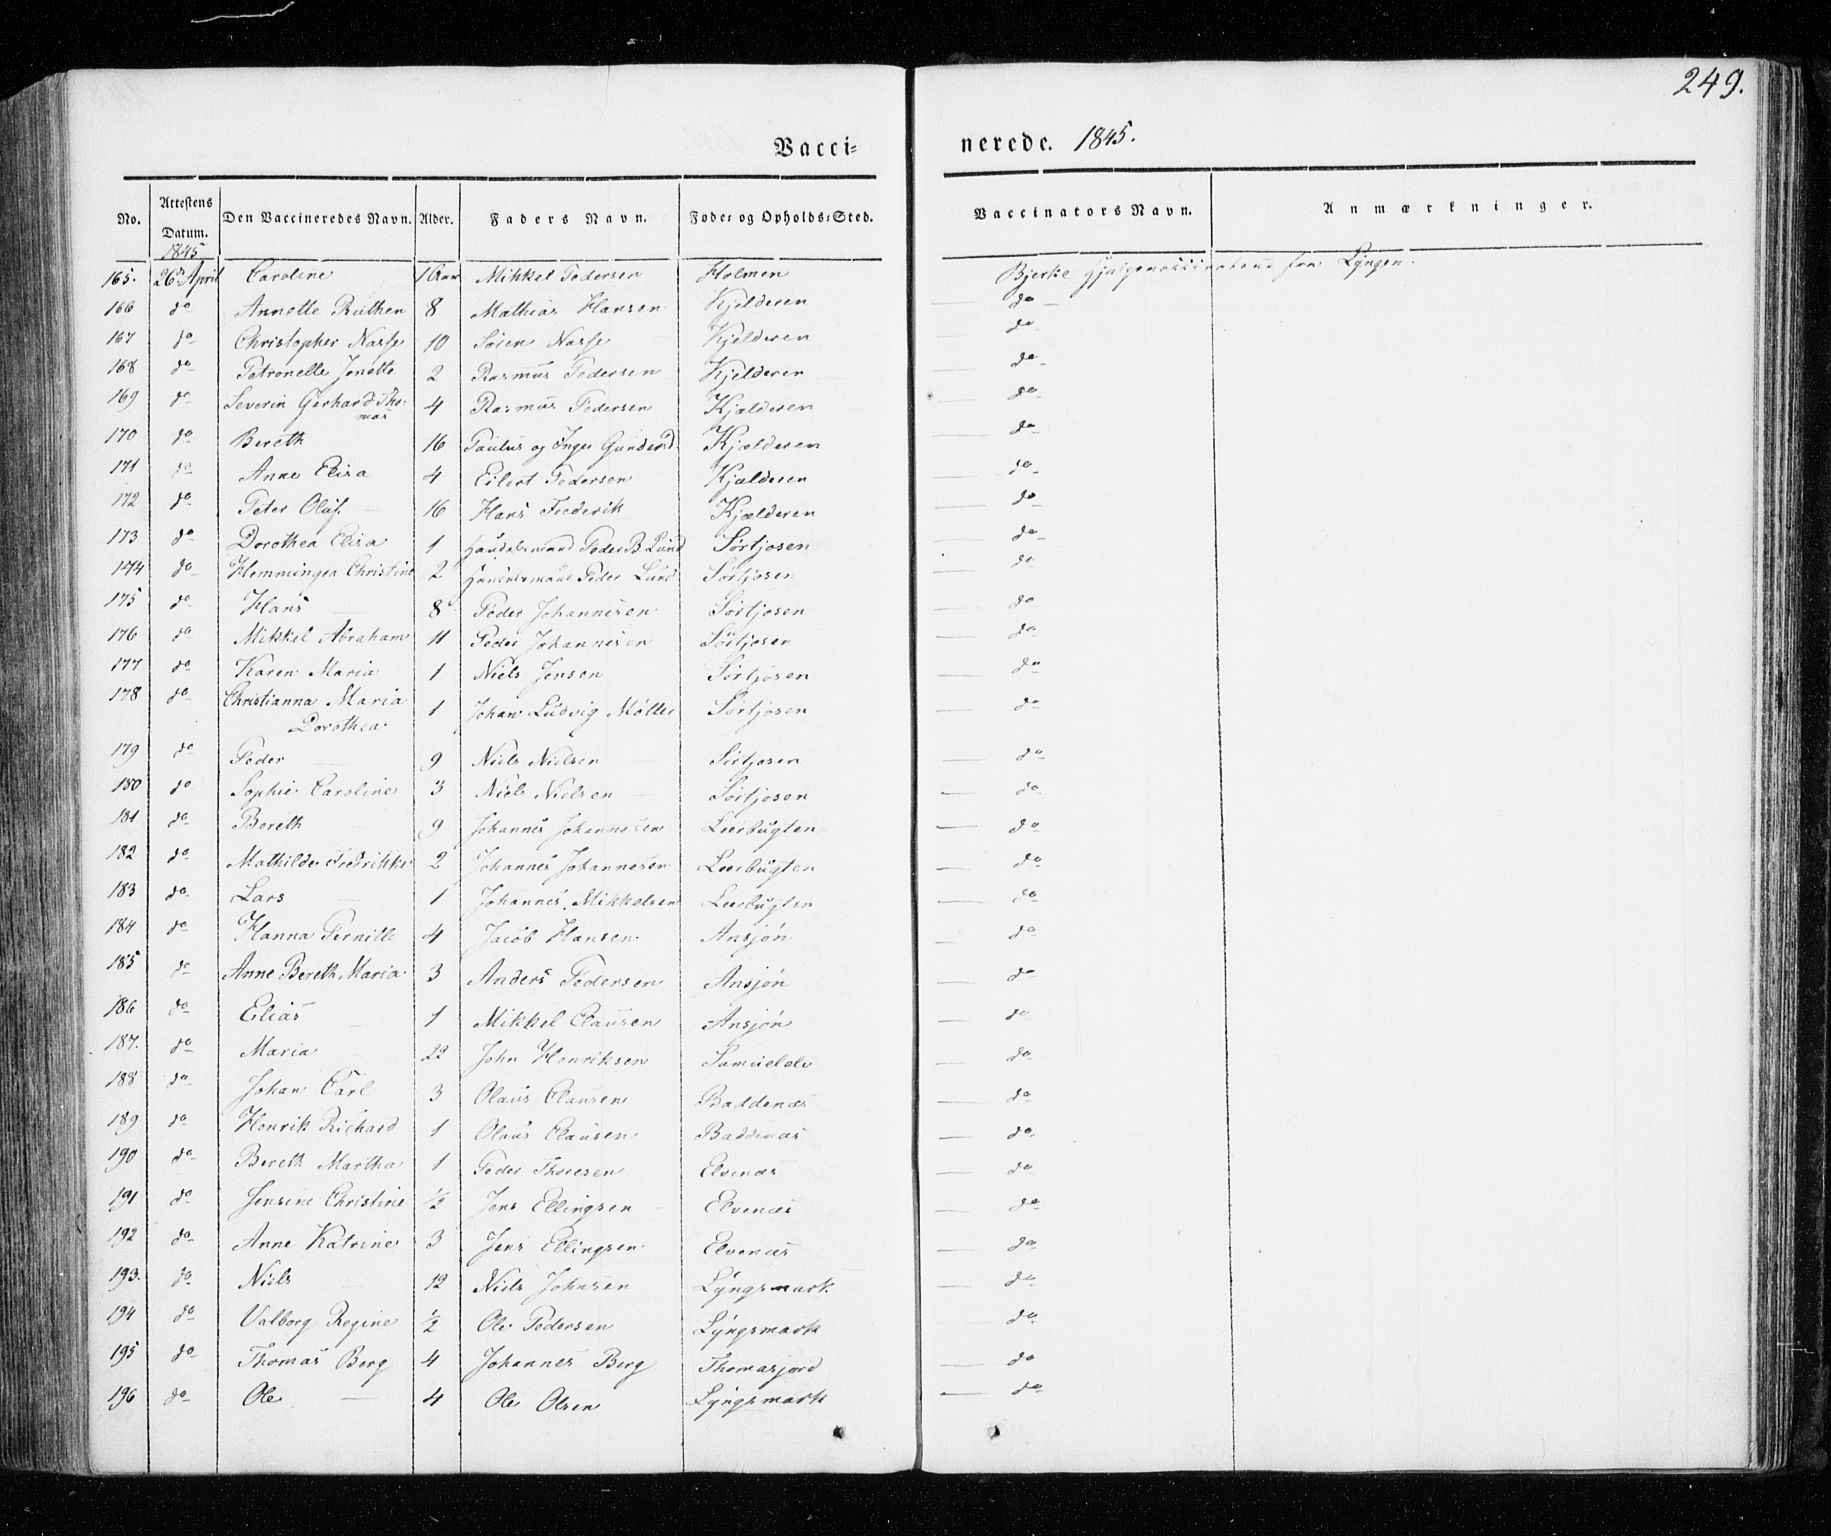 249.
Vacci= nerede. 1845.
No. Attestens Datum. Den Vaccineredes Navn. Alder. Faders Navn. Føde= og Opholds=Sted. Vaccinators Navn. Anmærkninger.
1845
165. 26de April Caroline 1 Aar Mikkel Pedersen Holmen Bjerke Hjelpevaccinateur fra Lyngen.
166 do Annette Ruthen 8 Mathias Hansen Kjelderen — do —
167 do Christopher Nasse 10 Sören Nasse Kjelderen — do
168 do Petronelle Jonette 2 Rasmus Pedersen Kjelderen — do
169 do Severin Gerhard Tho-
mas 4 Rasmus Pedersen Kjælderen — do
170 do Bereth 16 Paulus og Inger Gundersd. Kjælderen — do
171 do Anne Elisa 4 Eilert Pedersen Kjælderen — do
172 do Peter Oluf — 16 Hans Frederik Kjælderen — do
173 do Dorothea Elisa 1 Handelsmand Peder B Lund Sørtjosen — do
174 do Hemmingea Christine 2 Handelsmand Peder Lund Sørtjosen — do
175 do Hans — 8 Peder Johannesen Sørtjosen — do
176 do Mikkel Abraham 11 Peder Johannesen Sørtjosen — do
177 do Karen Maria 1 Niels Jensen Sørtjosen — do
178 do Christianna Maria
Dorothea 1 Johan Ludvig Møller Sørtjosen — do
179 do Peder — 9 Niels Nielsen — Sørtjosen — do
180 do Sophie Caroline 3 Niels Nielsen — Sørtjosen — do
181 do Bereth — 9 Johannes Johannesen Leerbugten — do
182 do Mathilde Fredrikke 2 Johannes Johannesen Leerbugten — do
183 do Lars — 1 Johannes Mikkelsen Leerbugten — do
184 do Hanna Pernille 4 Jacob Hansen Ansjøn — do
185 do Anne Bereth Maria 3 Anders Pedersen Ansjøn — do
186 do Elias — 1 Mikkel Clausen Ansjøn — do
187. do Maria — 22 John Henriksen Samuelelv — do
188 do Johan Carl 3 Olaus Clausen Baddenæs — do
189 do Henrik Richard 1 Olaus Clausen Baddenæs — do
190 do Bereth Martha 1 Peder Thoresen Elvenæs — do
191 do Jensine Christine ½ Jens Ellingsen — Elvenæs — do
192 do Anne Katrine 3 Jens Ellingsen Elvenæs — do
193. do Niels — 12 Niels Johnsen Lyngsmark — do
194 do Valborg Regine ½ Ole Pedersen Lyngsmark — do
195 do Thomas Berg 4 Johannes Berg Thomasjord — do
196 do Ole — 4 Ole Olsen Lyngsmark — do